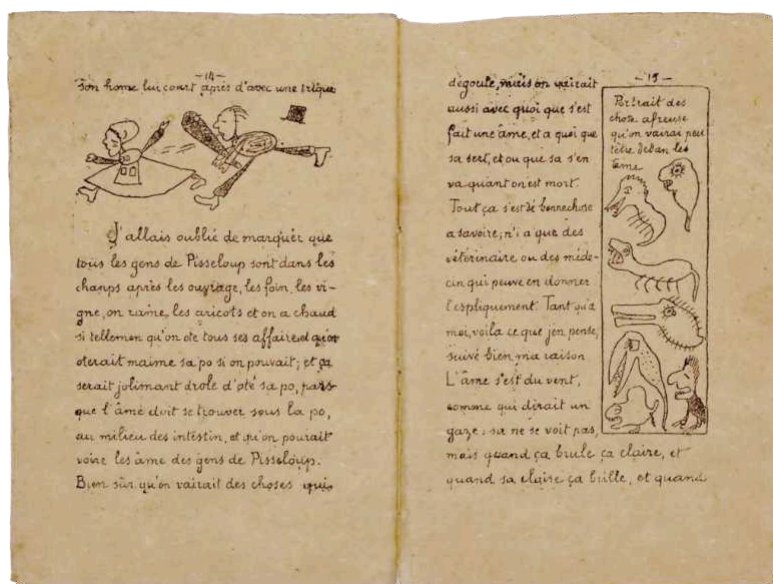 -14-
Son home lui court après d'avec une trique
J'allais oublié de marquér que
tous les gens de Pisseloup sont dans les
chanps après les ouvrage, les foin, les vi-
gne, on rame, les aricots et on a chaud
si tellemen qu'on ote tous ses affaire et qu'on
oterait maime sa po si on pouvait; et ça
serait jolimant drole d'oté sa po, pars
que l'âme doit se trouver sous la po,
au milieu des intéstin, et qu'on pourait
voire les âme des gens de Pisseloup.
Bien sûr qu'on vairait des choses qui
-15-
dégoute, mais on vairait
aussi avec quoi que s'est
fait une âme, et a quoi que
sa sert, et ou que sa s'en
va quant on est mort.
Tout ça s'est dé bonne chose
a savoire; n'i a que des
véterinaire ou des méde-
cin qui peuve en donner
l'espliquement. Tant qu'a
moi, voila ce que j'en pense,
suivé bien, ma raison.
L'âme s'est du vent,
comme qui dirait un
gaze; sa ne se voit pas,
mais quand ça brule ça claire, et
quand sa claire ça brille, et quand
Portrait des
chose afreuse
qu'on vairai peu
tètre dedan les
tems